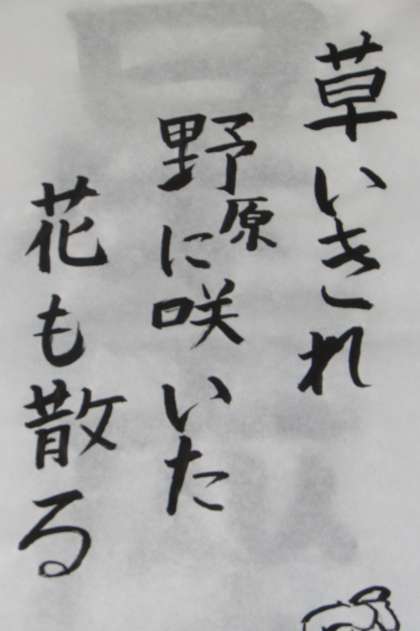 草いきれ
野原に咲いた
花も散る